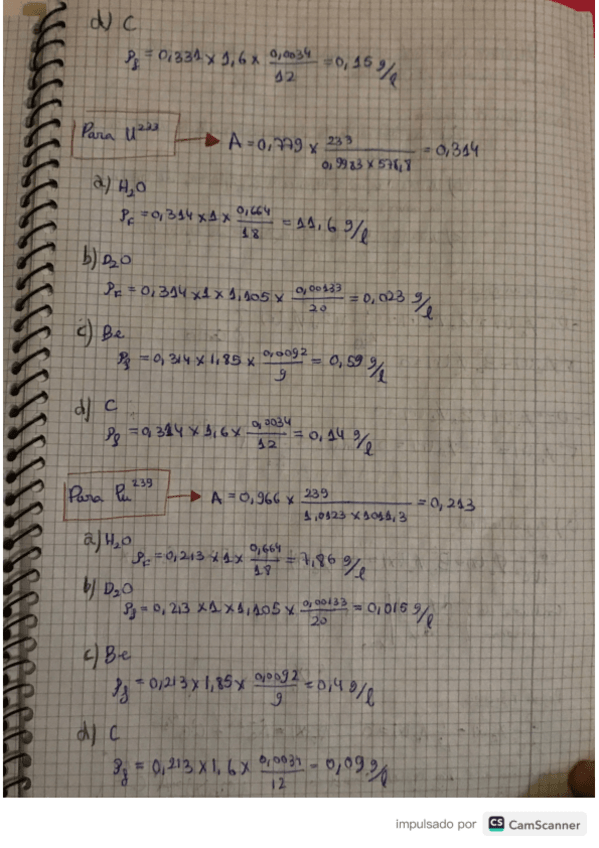 d) C
ρf = 0,331 x 1,6 x 0,0034/12 = 0,15 g/l
Para U²³³ → A = 0,779 x 233/0,9983 x 576,8 = 0,314
a) H₂O
ρF = 0,314 x 1 x 0,664/18 = 11,6 g/l
b) D₂O
ρF = 0,314 x 1 x 1,105 x 0,00133/20 = 0,023 g/l
c) Be
ρf = 0,314 x 1,85 x 0,0092/9 = 0,59 g/l
d) C
ρf = 0,314 x 1,6 x 0,0034/12 = 0,14 g/l
Para Pu²³⁹ → A = 0,966 x 239/1,0123 x 1011,3 = 0,213
a) H₂O
ρF = 0,213 x 1 x 0,664/18 = 7,86 g/l
b) D₂O
ρf = 0,213 x 1 x 1,105 x 0,00133/20 = 0,015 g/l
c) Be
ρf = 0,213 x 1,85 x 0,0092/9 = 0,4 g/l
d) C
ρf = 0,213 x 1,6 x 0,0034/12 = 0,09 g/l
impulsado por CS CamScanner